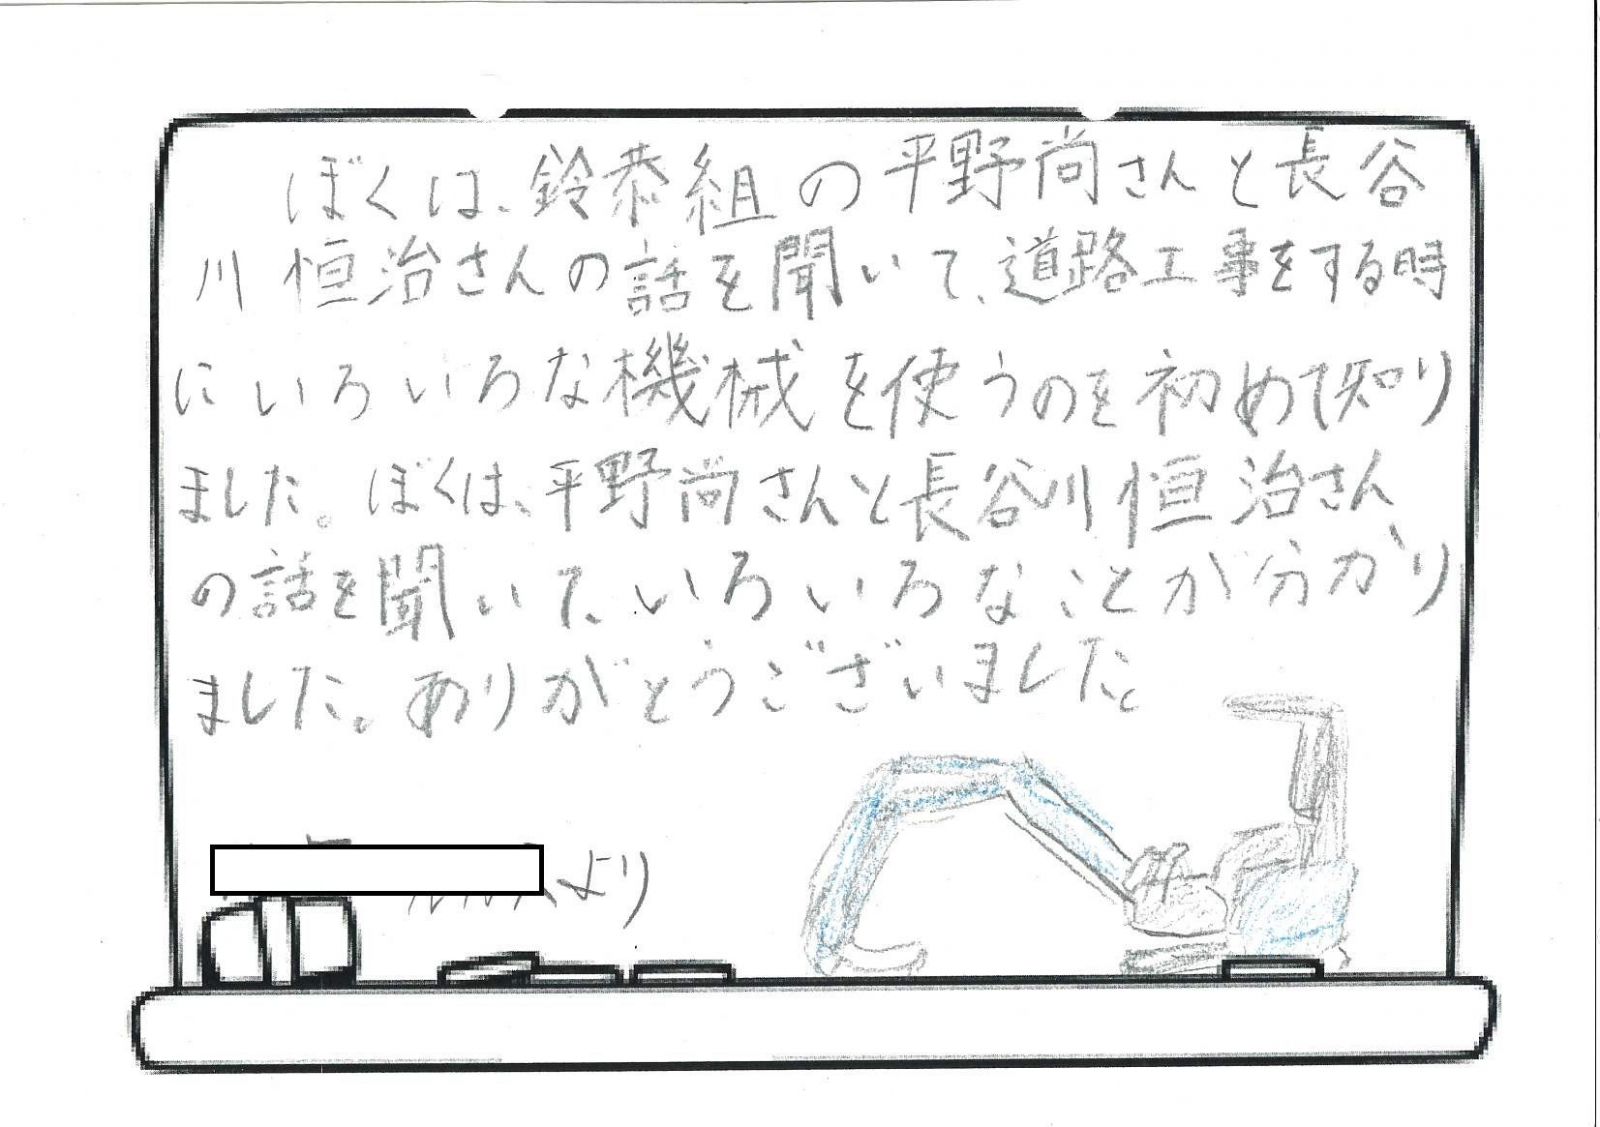 ぼくは、鈴恭組の平野尚さんと長谷
川恒治さんの話を聞いて、道路工事をする時
にいろいろな機械を使うのを初めて知り
ました。ぼくは、平野尚さんと長谷川恒治さん
の話を聞いて、いろいろなことが分かり
ました。ありがとうございました。
より